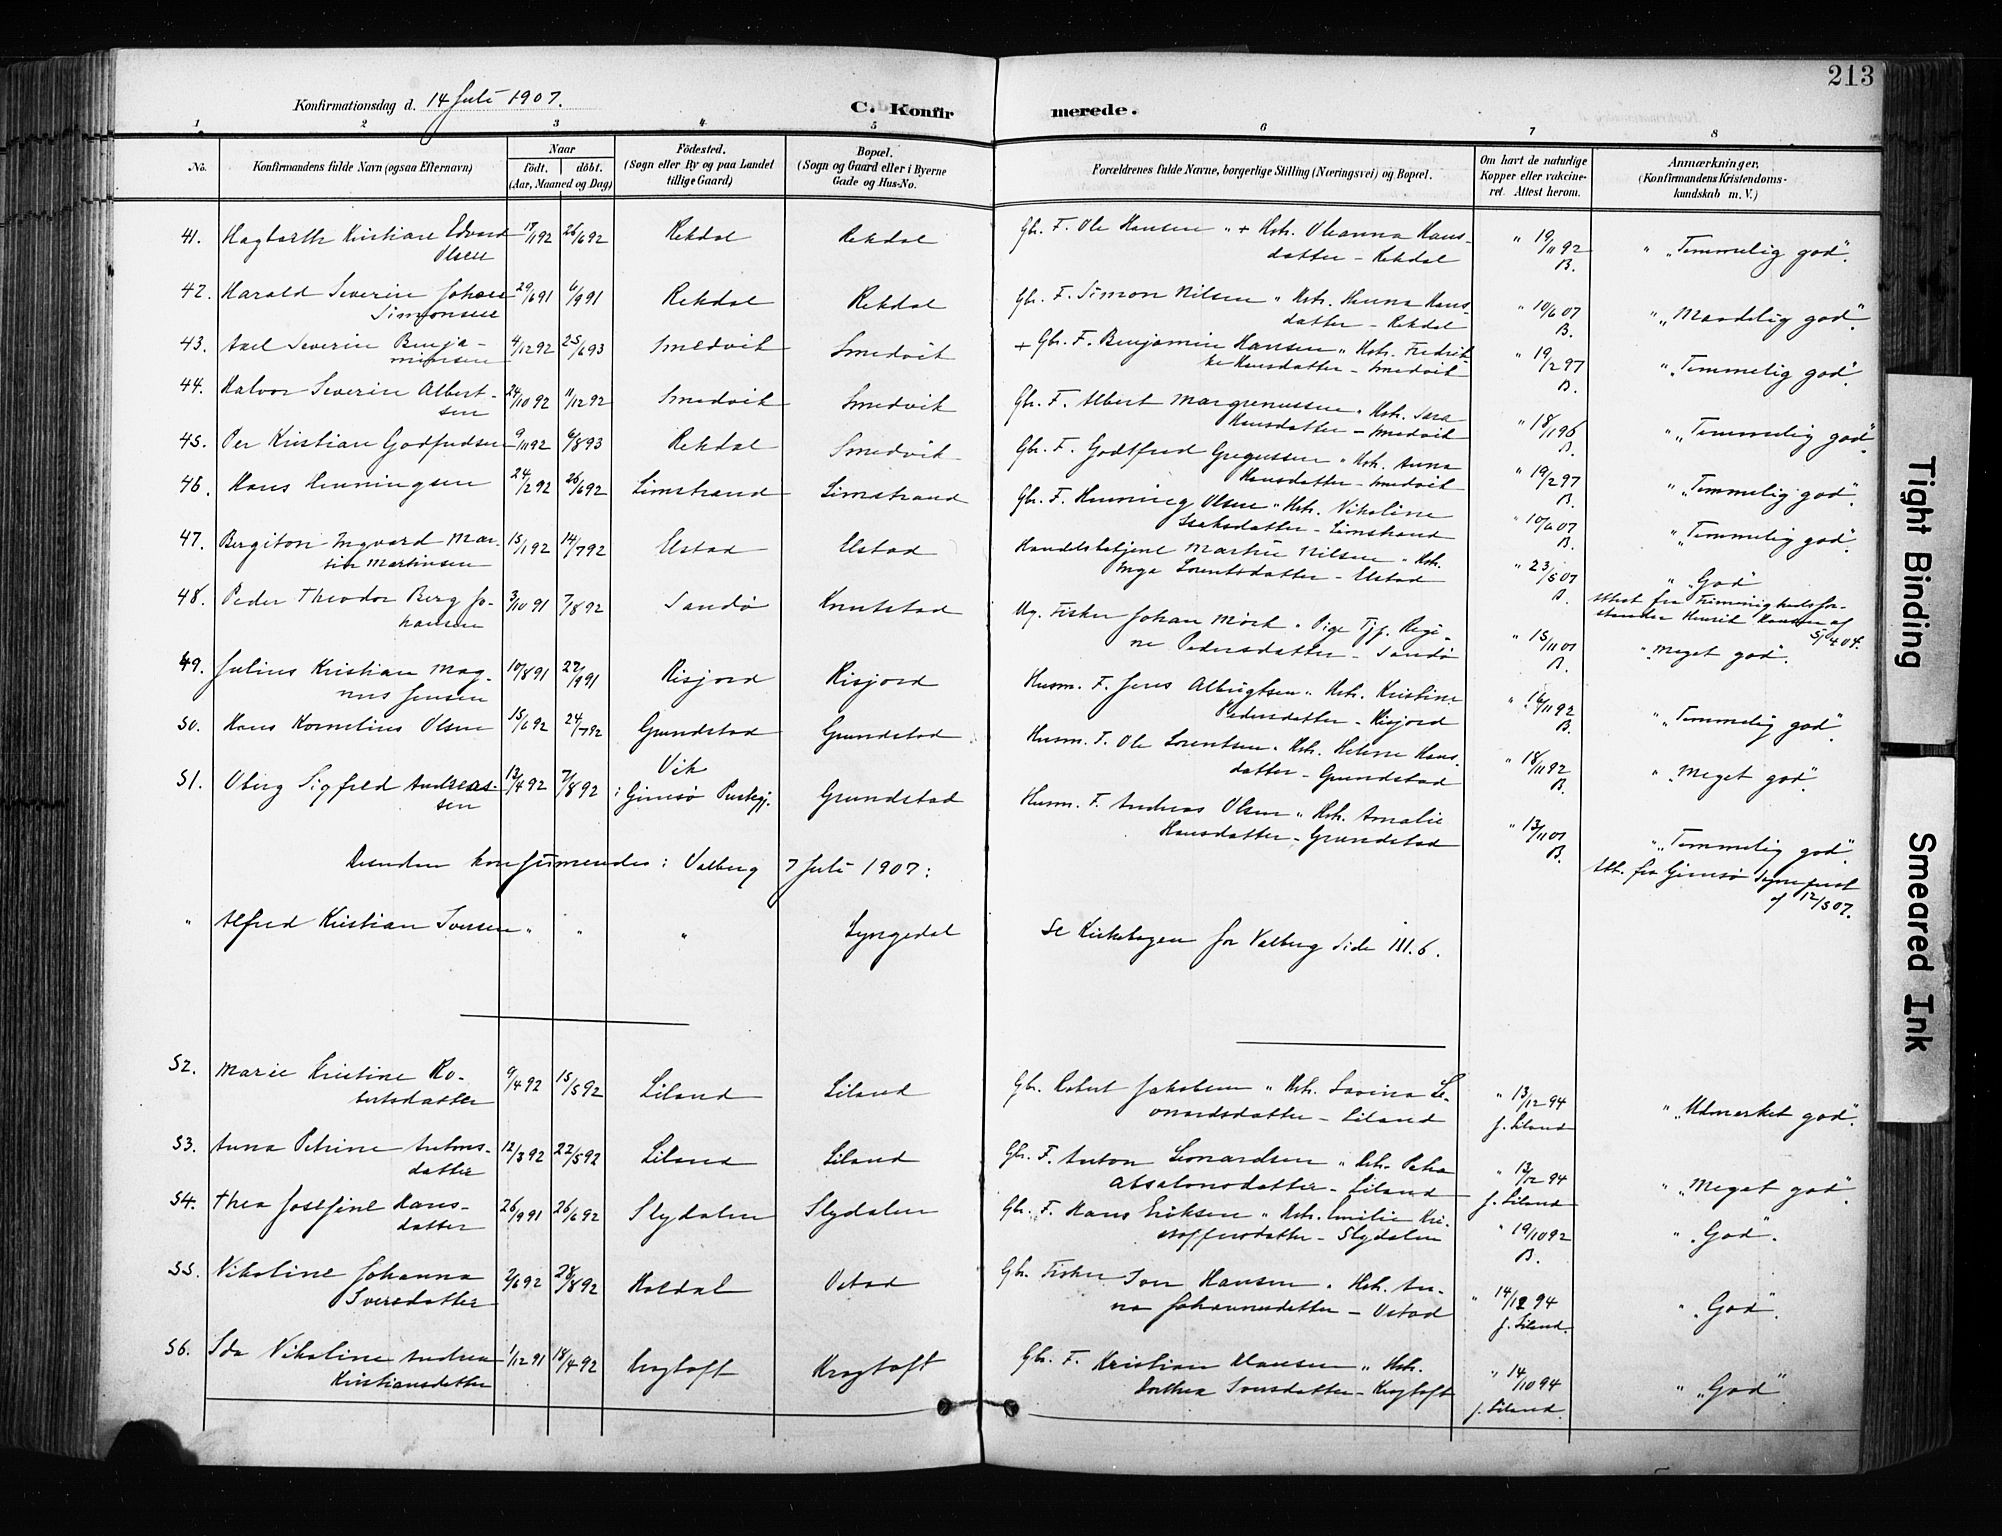 213
Konfirmationsdag d. 14 Juli 1907.
C. Konfirmerede.
1. 2 3 4 5 6 7 8
No.
Konfirmandens fulde Navn (ogsaa Efternavn)
Naar
födt. döbt.
(Aar, Maaned og Dag)
Födested.
(Sogn eller By og paa Landet
tillige Gaard)
Bopæl.
(Sogn og Gaard eller i Byerne
Gade og Hus-No.
Forældrenes fulde Navne, borgerlige Stilling (Næringsvei) og Bopæl.
Om havt de naturlige
Kopper eller vakcine-
ret. Attest herom.
Anmærkninger,
(Konfirmandens Kristendoms-
kundskab m. V.)
41. Hagbarth Kristian Edvard 17/1 92 26/6 92 Rekdal Rekdal Gbr. F. Ole Hansen " + Hstr. Oleanna Hans- " 19/11 92 " "Temmelig god".
Olsen datter - Rekdal B.
42. Harald Severin Johan 29/6 91 6/9 91 Rekdal Rekdal Gbr. F. Simon Nilsen " Hstr. Hanna Hans- " 10/6 07 " "Maadelig god".
Simonsen datter - Rekdal B.
43. Axel Severin Benja- 4/12 92 25/6 93 Smedvik Smedvik + Gbr. F. Benjamin Hansen " Hstr. Fredrik- " 19/2 97 " "Temmelig god".
minsen ke Hansdatter - Smedvik B.
44. Halvor Severin Albert- 24/10 92 11/12 92 Smedvik Smedvik Gbr. F. Albert Margrenussen " Hstr. Sara " 18/1 96 " "Temmelig god".
sen Hansdatter - Smedvik B.
45. Per Kristian Godfredsen 9/11 92 6/8 93 Rekdal Smedvik Gbr. F. Godtfred Gregussen " Hstr. Anna " 19/2 97 " "Temmelig god".
Hansdatter - Smedvik B.
46. Hans Henningsen 24/2 92 26/6 92 Limstrand Limstrand Gbr. F. Henning Olsen " Hstr. Nikoline " 10/6 07 " "Temmelig god".
Isaksdatter - Limstrand B.
47. Bergiton Ingvard Mar- 15/1 92 14/7 92 Ulstad Ulstad Handelsbetjent Martin Nilsen " Hstr. " 23/5 07 " "God"
tin Martinsen Inga Lorentsdatter - Ulstad B.
Attest fra Frimenighedsfor-
stander Henrik Hansen af
5/9 04.
48. Peder Theodor Berg Jo- 3/10 91 7/8 92 Sandö Knutstad Ug. Fisker Johan Mörk " Pige Tjg. Regi- " 15/11 01 " "Meget god".
hansen ne Pedersdatter - Sandö B.
49. Julius Kristian Mag- 10/8 91 27/9 91 Risjord Risjord Husm. F. Jens Albrigtsen " Hstr. Kristine " 16/11 92 " "Temmelig god".
nus Jensen Pedersdatter - Risjord B.
50. Hans Kornelius Olsen 15/6 92 24/7 92 Grundstad Grundstad Husm. F. Ole Lorentsen " Hstr. Helene Hans- " 18/11 92 " "Meget god".
datter - Grundstad B.
51. Oberg Sigfred Andreas- 13/4 92 7/8 92 Vik Grundstad Husm. F. Andreas Olsen " Hstr. Amalie " 13/11 01 " "Temmelig god".
sen i Gimsö Prstgj. Hansdatter - Grundstad B.
Att. fra Gimsö Sogneprest
af 12/5 07.
Desuden konfirmeredes i Valberg 7 Juli 1907:
" Alfred Kristian Iversen " " " Lyngedal Se Kirkebogen for Valberg Side 111. 6.
52. Marie Kristine Ro- 9/4 92 15/5 92 Liland Liland Gbr. Robert Jakobsen " Hstr. Lovina Le- " 13/12 94 " "Udmerket god".
bertsdatter onardsdatter - Liland J. Liland
53. Anna Petrine Antons- 12/3 92 22/5 92 Liland Liland Gbr. F. Anton Leonardsen " Hstr. Petra " 13/12 94 " "Meget god".
datter Absalonsdatter - Liland J. Liland
54. Thea Josefine Hans- 26/9 91 26/6 92 Slydalen Slydalen Gbr. F. Hans Eriksen " Hstr. Emilie Kri- " 19/10 92 " "God".
datter stoffersdatter - Slydalen B.
55. Nikoline Johanna 2/6 92 28/8 92 Holdal Ostad Gbr. Fisker Iver Hansen " Hstr. An- " 14/12 94 " "God".
Iversdatter na Johannesdatter - Ostad J. Liland.
56. Ida Nikoline Andrea 1/12 91 18/4 92 Krogtoft Krogtoft Gbr. F. Kristian Klausen " Hstr. " 14/10 94 " "God"
Kristiansdatter Dorthea Jonsdatter - Krogtoft J. Liland.
Tight Binding
Smeared Ink